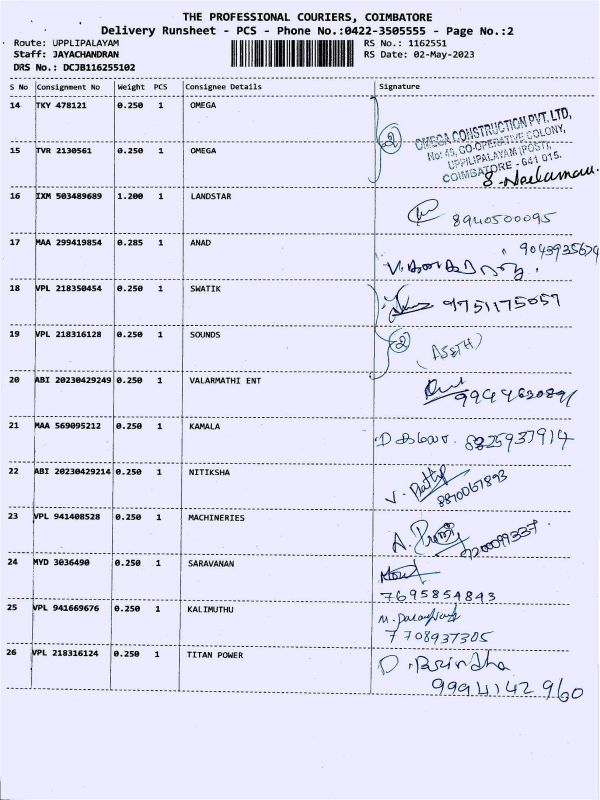 THE PROFESSIONAL COURIERS, COIMBATORE
Delivery Runsheet - PCS - Phone No.:0422-3505555 - Page No.:2
Route: UPPLIPALAYAM
RS No.: 1162551
Staff: JAYACHANDRAN
RS Date: 02-May-2023
DRS No.: DCJB116255102
S No Consignment No Weight PCS Consignee Details Signature
14 TKY 478121 0.250 1 OMEGA
2 OMEGA CONSTRUCTION PVT. LTD,
No: 45, CO-OPERATIVE COLONY,
15 TVR 2130561 0.250 1 OMEGA
UPPILIPALAYAM (POST),
COIMBATORE - 641 015.
16 IXM 503489689 1.200 1 LANDSTAR
8940500095
17 MAA 299419854 0.285 1 ANAD
18 VPL 218350454 0.250 1 SWATIK
9751175057
19 VPL 218316128 0.250 1 SOUNDS
2
20 ABI 20230429249 0.250 1 VALARMATHI ENT
21 MAA 569095212 0.250 1 KAMALA
22 ABI 20230429214 0.250 1 NITIKSHA
8870067893
23 VPL 941408528 0.250 1 MACHINERIES
24 MYD 3036490 0.250 1 SARAVANAN
7695854843
25 VPL 941669676 0.250 1 KALIMUTHU
7708937305
26 VPL 218316124 0.250 1 TITAN POWER
D. Brindha
9994142960